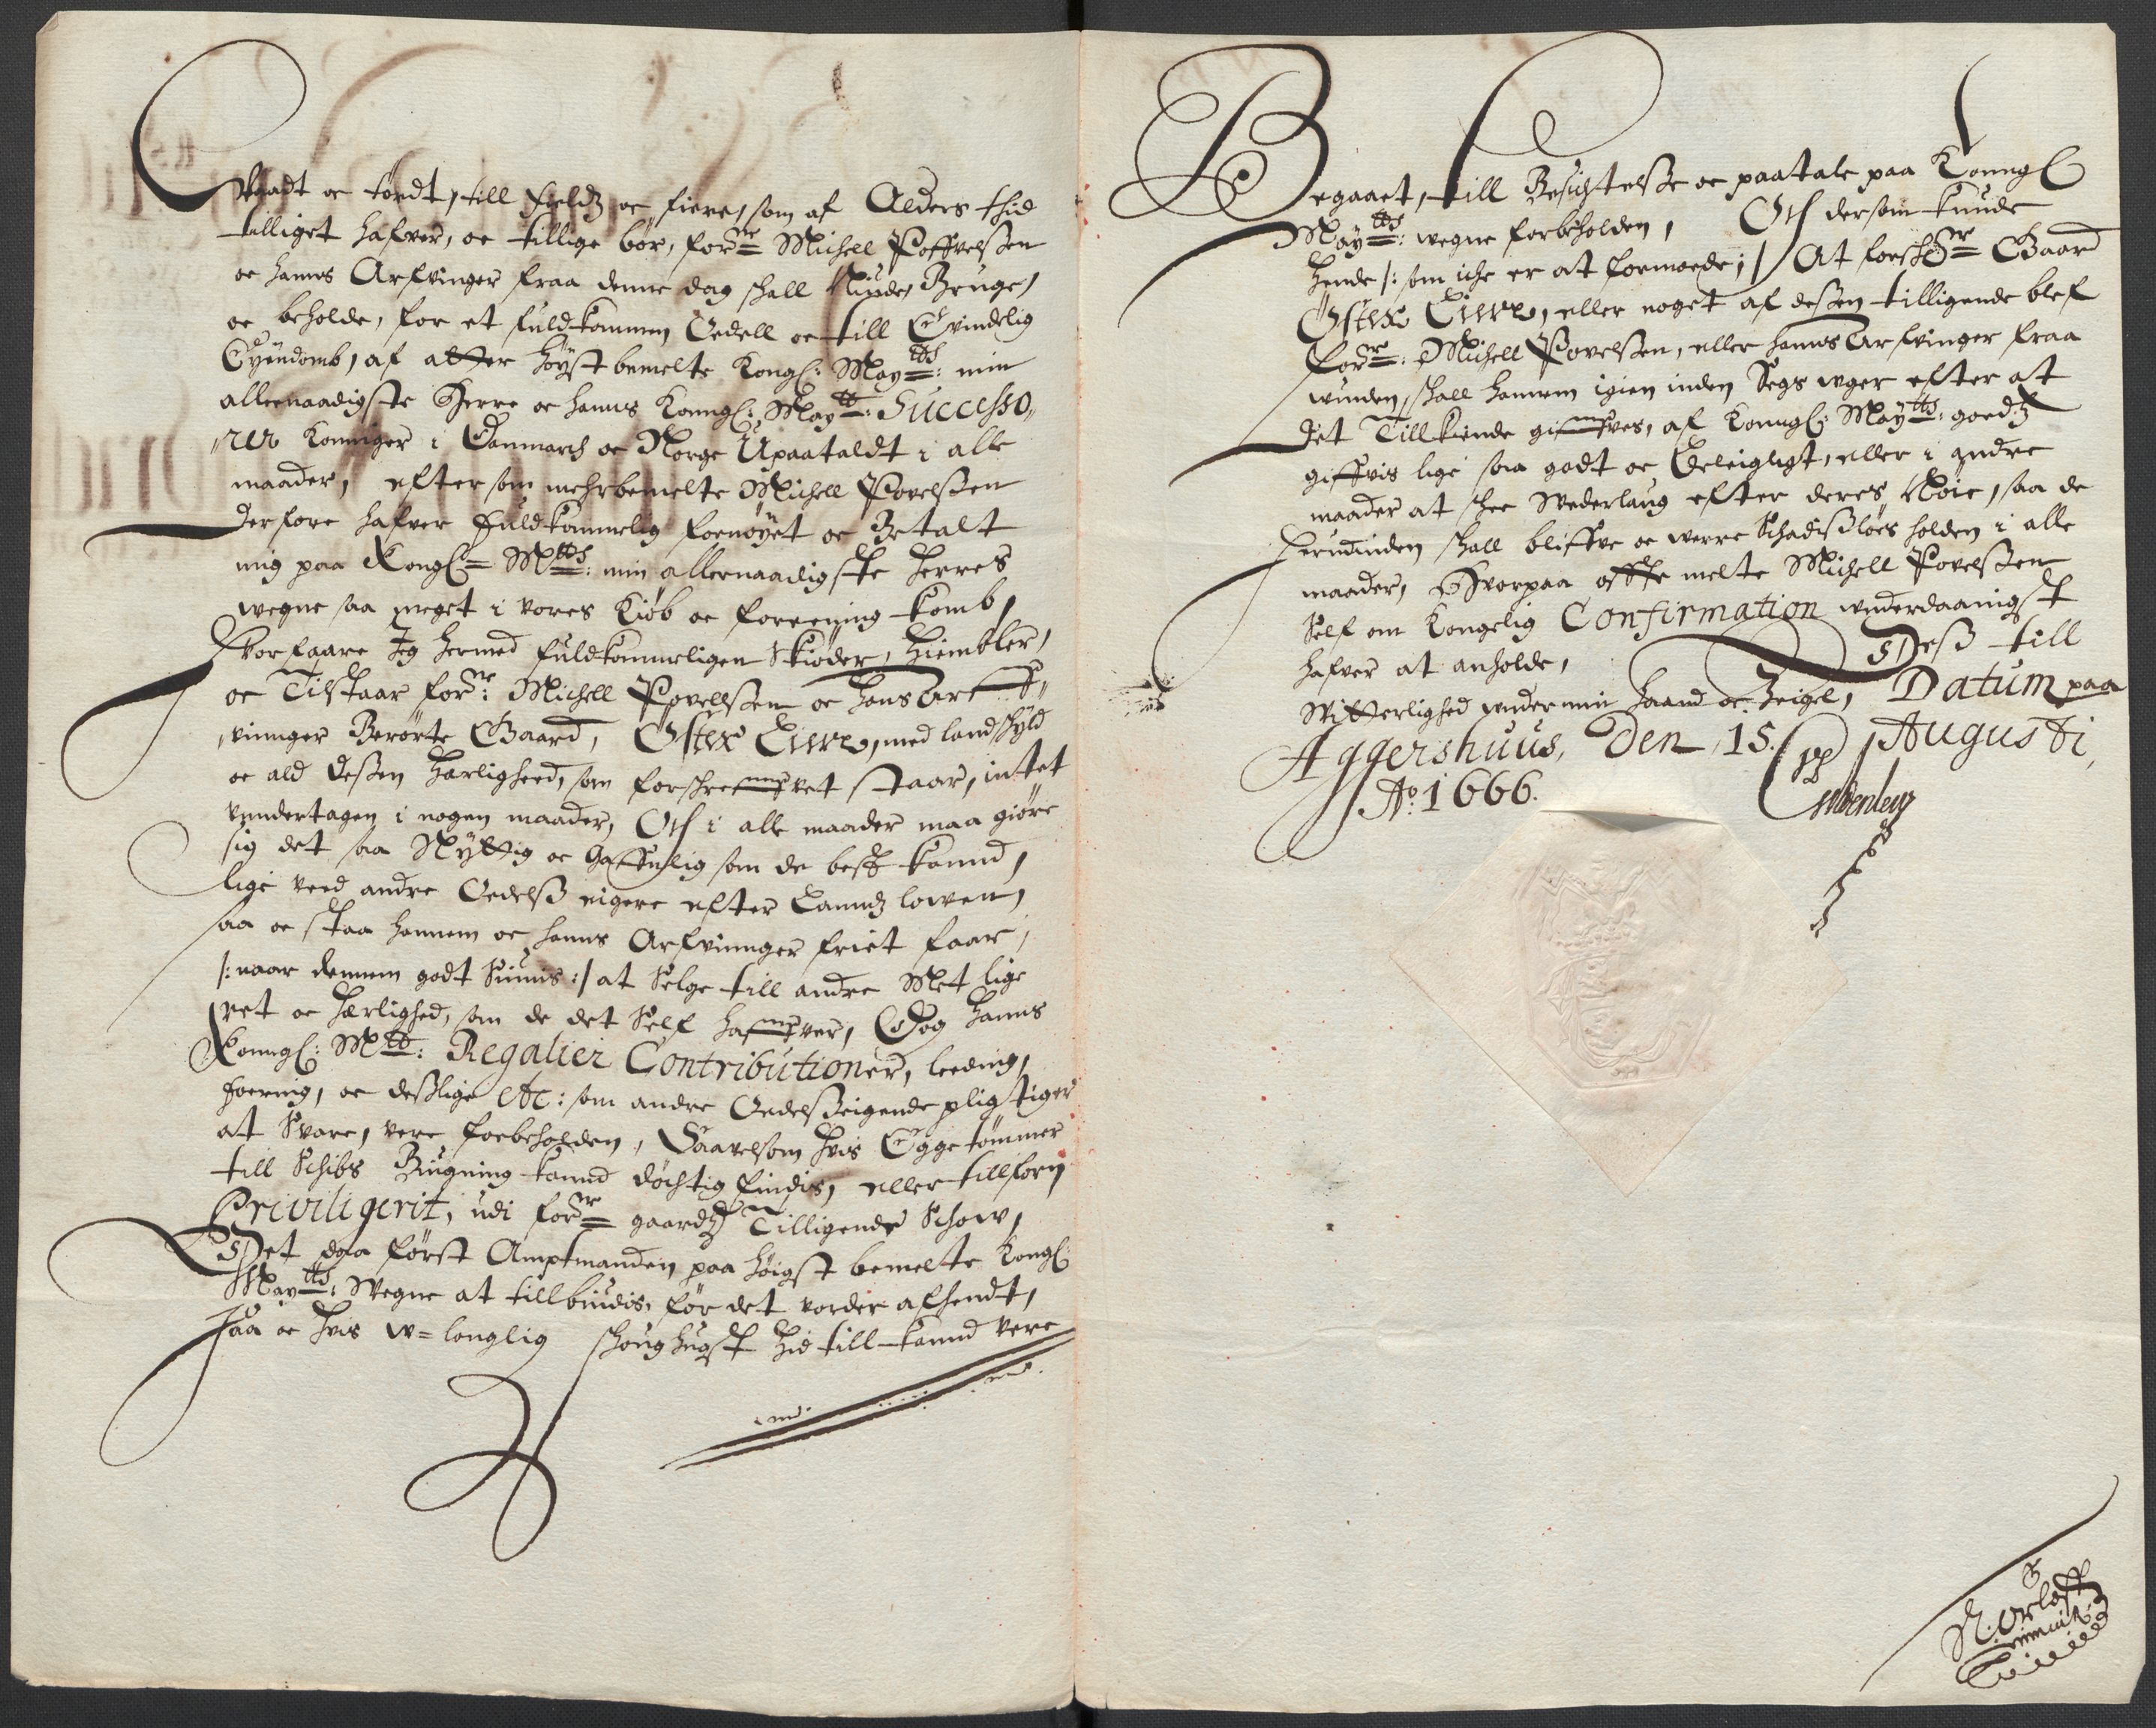 Vaadt oc tørdt, till fieldz oc fiere, som af Alders thid
tilliget hafver, oc tillige bør, for:ne Michell Poffvelßen
oc hanns Arfvinger fraa denne dag schall Niude, Bruge,
oc beholde, for et fuldkommen Oedell oc till Evindelig
Eyendomb, af atter høyst bemelte Kongl: May:tts: min
allernaadigste Herre oc hanns Konngl: May:tt: Successo,,
,,rer Konniger i Danmarch oc Norge Upaataldt i alle
maader, eftersom mehrbemelte Michell Povelßen
derfore hafver fuldkommelig fornøyet oc Betalt
mig paa Kongl: M:tts: min allernaadigste Herres
wegne saa meget i vores Kiøb oc foreening komb,
Hvorfaare Jeg hermed fuldkommeligen Skiøder, Hiembler,
oc Tilstaar for:ne: Michell Povellßen oc hans Arff,,
,,vinnger Berørte Gaard, Øster Eiwe, med landschyld
oc ald deßen Herligheed, som forschreffvet staar, inttet
vnndertagen i nogen maader, Och i alle maader maa giøre
sig det saa Nyttig oc Gaffnlig som de best kannd,
lige veed andre Oedelß eigere efter Lanndz lowen,
saa oc staa hannem oc hanns Arfvinnger friet faare,
/: naar dennem godt Siunis :/ at Selge till andre Met lige
ret oc Herlighed, som de det Self haffver, Dog Hanns
Konngl: M:tts: Regalier Contributioner, leeding,
foering, oc deßlige etc: som andre Oedelßeigende pligtiger
at Svare, vere forbeholden, Saavelsom hvis Eggetømmer
till Schibs Bugning kannd døchtig findis, eller tillforn
Priviligerit, udi for:ne gaardz Tilligende Schow,
Det daa først Amptmanden paa høigst bemelte Kongl:
May:tts: Wegne at tillbiudis, før det vorder afhendt,
Saa oc hvis w=louglig schoug hugst hid till kannd vere
Begaaet, till Besichtelße oc paatale paa Konngl
May:tts: wegne forbeholden, Och dersom kunde
hende /: som iche er at formoede :/ At forsch:ne Gaard
Øster Eiwe, eller noget af deßen tilligende blef
for:ne: Michell Povelßen, eller hanns Arfvinger fraa
wunden, schall hannem igien inden Sex uger efter at
det Tillkiende giffves, af Konngl: May:tts: goedz
giffvis lige saa godt oc Beleigligt, eller i andre
maader at schee Wederlaug efter deres Nøie, saa de
herudinden schall bliffve oc were Schadißløes holden i alle
maader, Hvorpaa offte melte Michell Povelßen
Self om Kongelig Confirmation underdaanigst
hafver at anholde, Deß till
Witterlighed under min Haand oc Zeigel, Datum paa
Aggershuus, Den 15. Augusti,
A:o 1666.